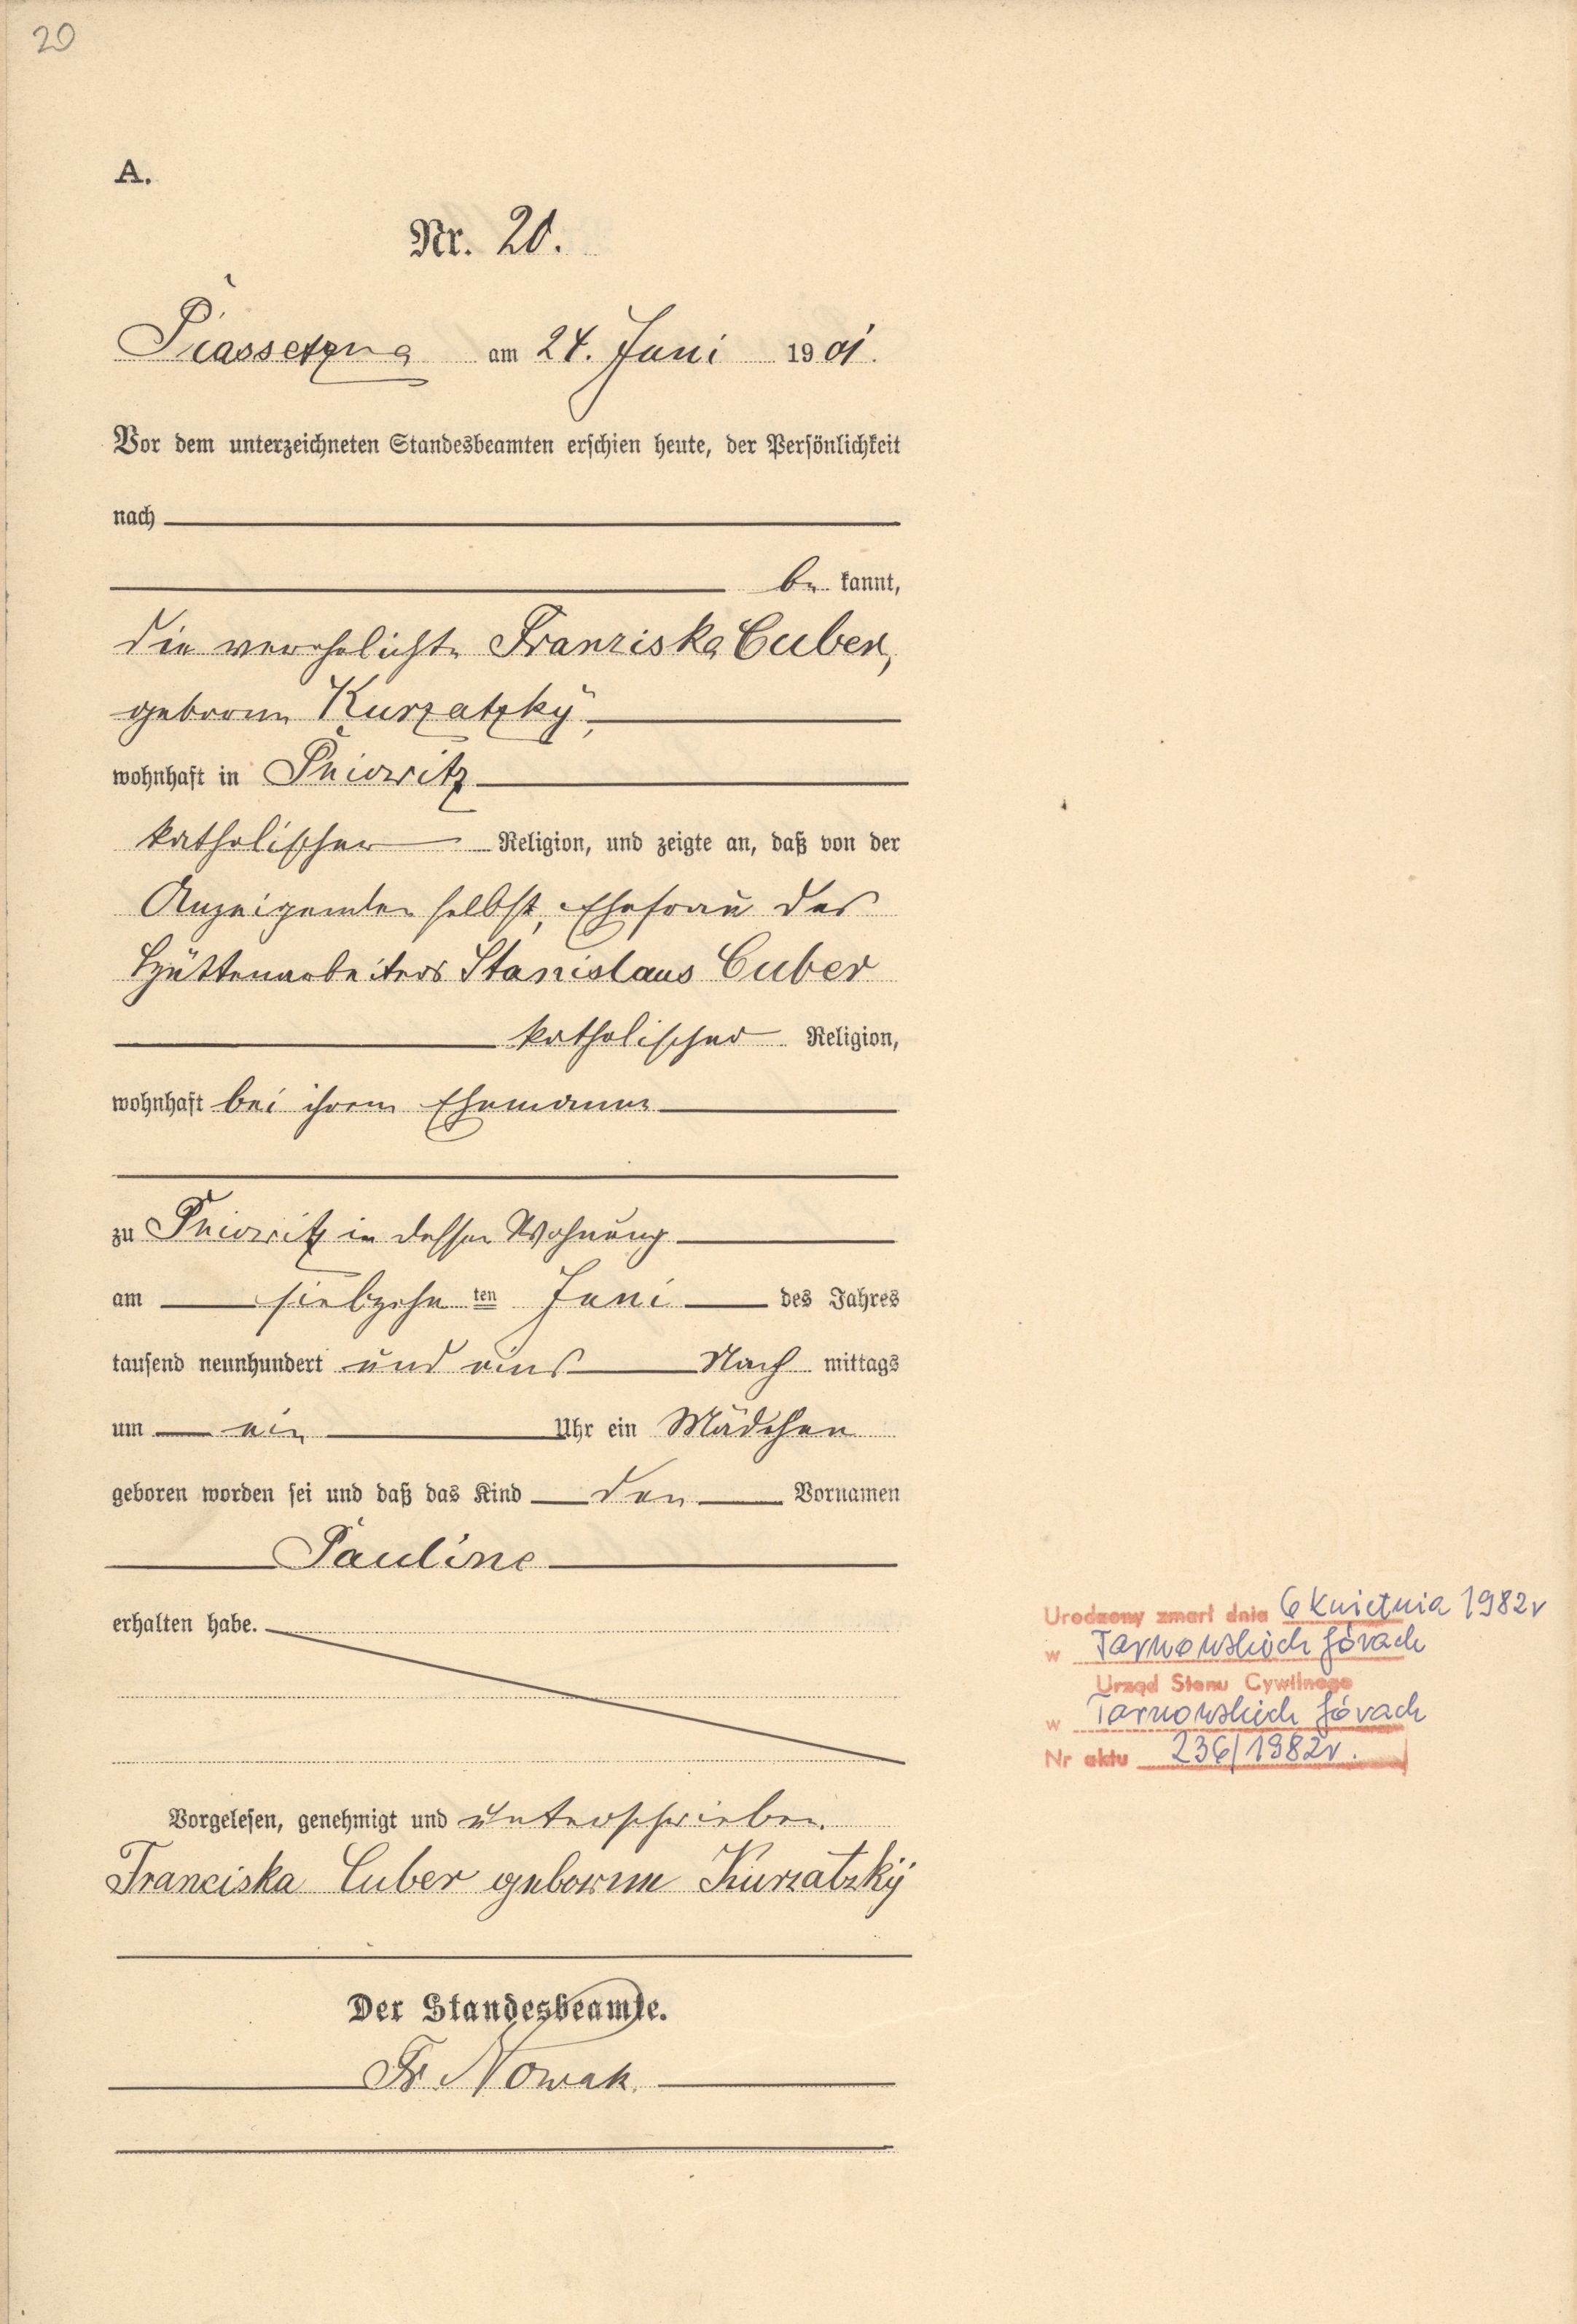 20
A.
Nr. 20.
Piassetzna am 24. Juni 1901.
Vor dem unterzeichneten Standesbeamten erschien heute, der Persönlichkeit
nach
be kannt,
die verehelichte Franziska Cuber,
geborene Kurzatzky,
wohnhaft in Pniowitz
katholischer Religion, und zeigte an, daß von der
Anzeigenden selbst, Ehefrau des
Hüttenarbeiters Stanislaus Cuber
katholischer Religion,
wohnhaft bei ihrem Ehemann
zu Pniowitz in dessen Wohnung
am siebzehn ten Juni des Jahres
tausend neunhundert und eins Nach mittags
um ein Uhr ein Mädchen
geboren worden sei und daß das Kind den Vornamen
Pauline
erhalten habe.
Vorgelesen, genehmigt und unterschrieben.
Franciska Cuber geborene Kurzatzky
Der Standesbeamte.
Fr. Nowak.
Urodzony zmarł dnia 6 kwietnia 1982r
w Tarnowskich Górach
Urząd Stanu Cywilnego
w Tarnowskich Górach
Nr aktu 236/1982r.